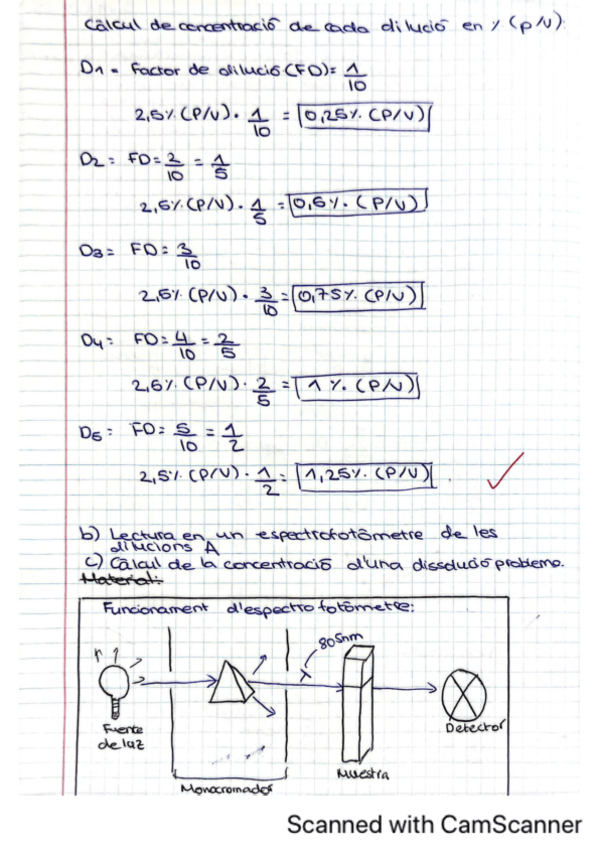 Càlcul de concentració de cada dilució en % (p/v).
D1 = Factor de dilució (FD) = 1/10
2,5% (P/V) · 1/10 = 0,25% (P/V)
D2 = FD = 2/10 = 1/5
2,5% (P/V) · 1/5 = 0,5% (P/V)
D3 = FD = 3/10
2,5% (P/V) · 3/10 = 0,75% (P/V)
D4 = FD = 4/10 = 2/5
2,5% (P/V) · 2/5 = 1% (P/V)
D5 = FD = 5/10 = 1/2
2,5% (P/V) · 1/2 = 1,25% (P/V)
b) Lectura en un espectrofotòmetre de les
dilucions A
c) Càlcul de la concentració d'una dissolució problema.
Material:
Funcionament d'espectrofotòmetre:
805nm
λ
Fuente
de luz
Monocromador
Muestra
Detector
Scanned with CamScanner